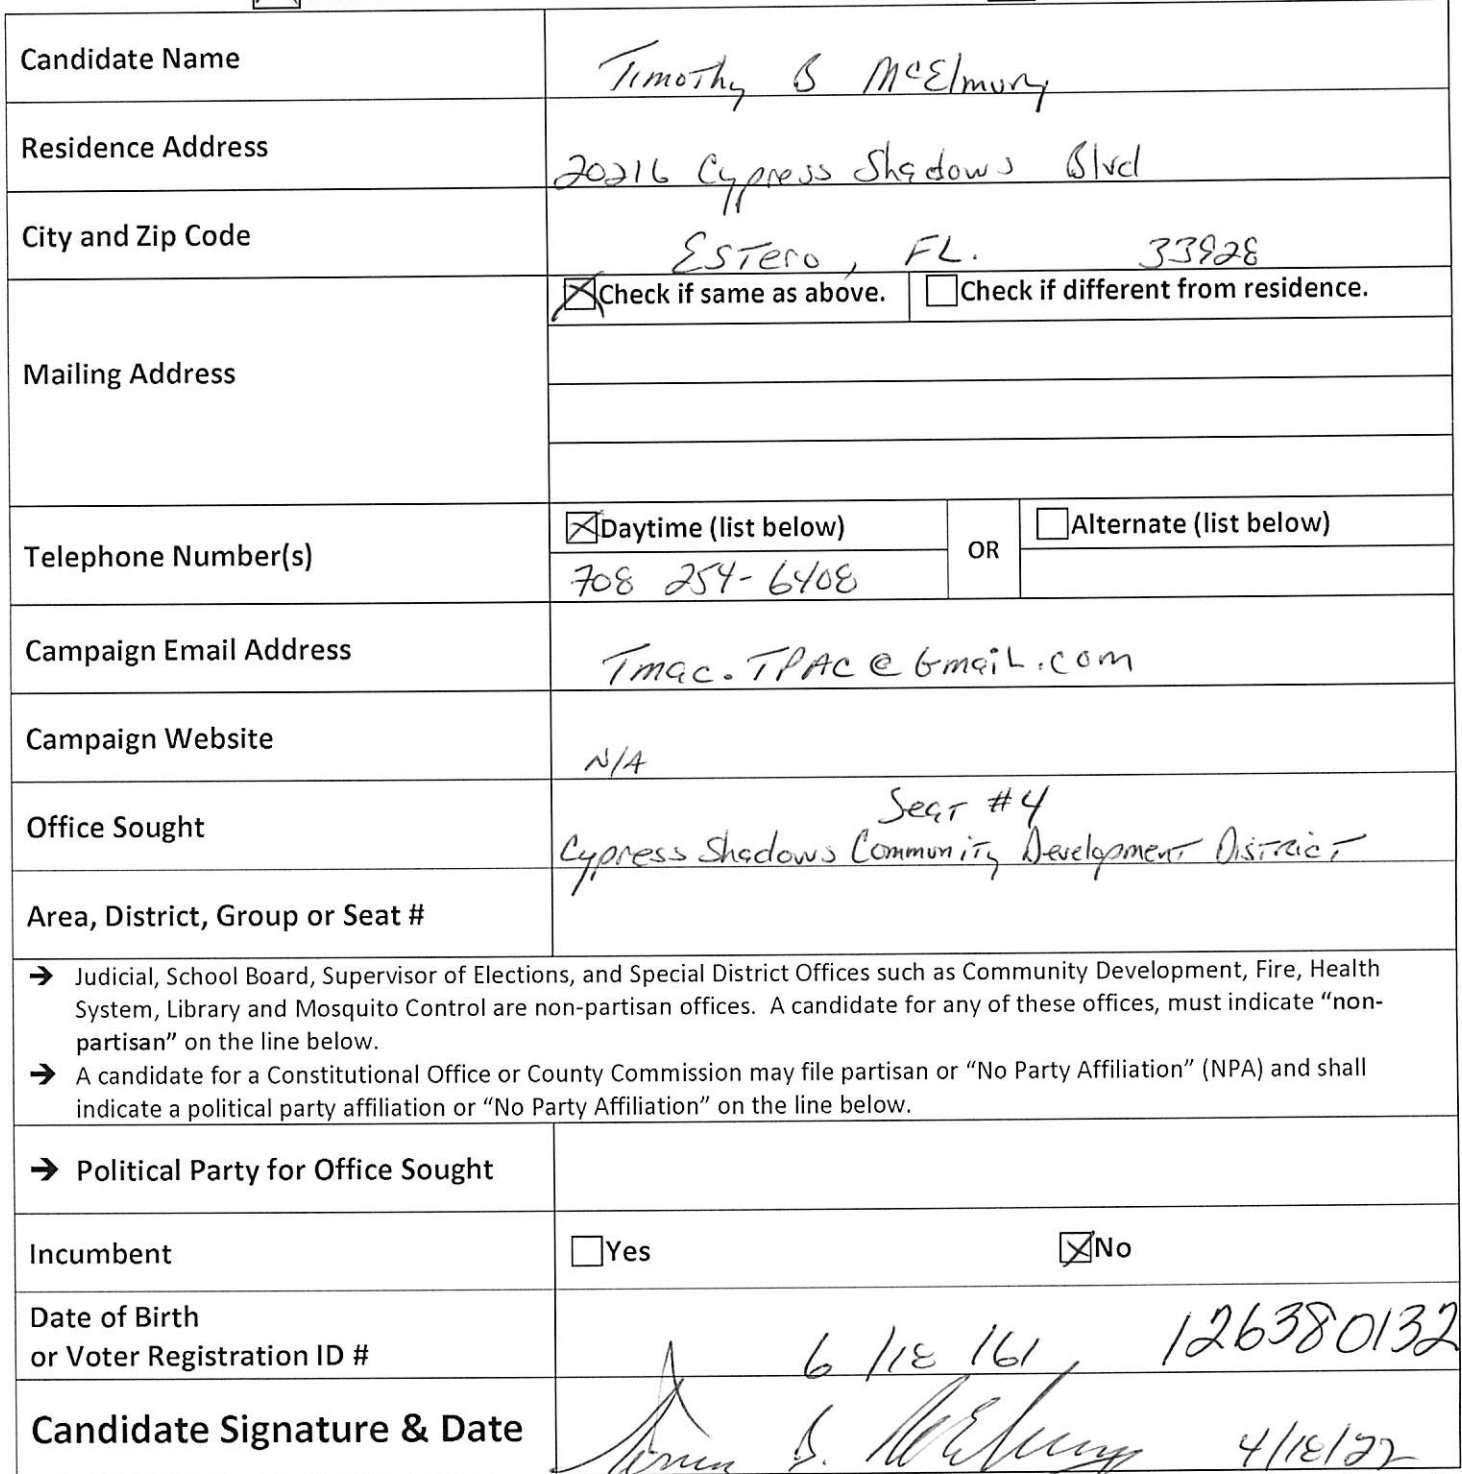 Candidate Name Timothy B McElmury
Residence Address 20216 Cypress Shadows Blvd
City and Zip Code Estero, FL. 33928
Check if same as above. Check if different from residence.
Mailing Address
Daytime (list below) OR Alternate (list below)
Telephone Number(s) 708 254-6408
Campaign Email Address Tmac.TPAC@Gmail.com
Campaign Website N/A
Seat #4
Office Sought Cypress Shadows Community Development District
Area, District, Group or Seat #
→ Judicial, School Board, Supervisor of Elections, and Special District Offices such as Community Development, Fire, Health
System, Library and Mosquito Control are non-partisan offices. A candidate for any of these offices, must indicate “non-
partisan” on the line below.
→ A candidate for a Constitutional Office or County Commission may file partisan or “No Party Affiliation” (NPA) and shall
indicate a political party affiliation or “No Party Affiliation” on the line below.
→ Political Party for Office Sought
Incumbent Yes No
Date of Birth
or Voter Registration ID # 6/18/61, 126380132
Candidate Signature & Date B. McElmury 4/18/22